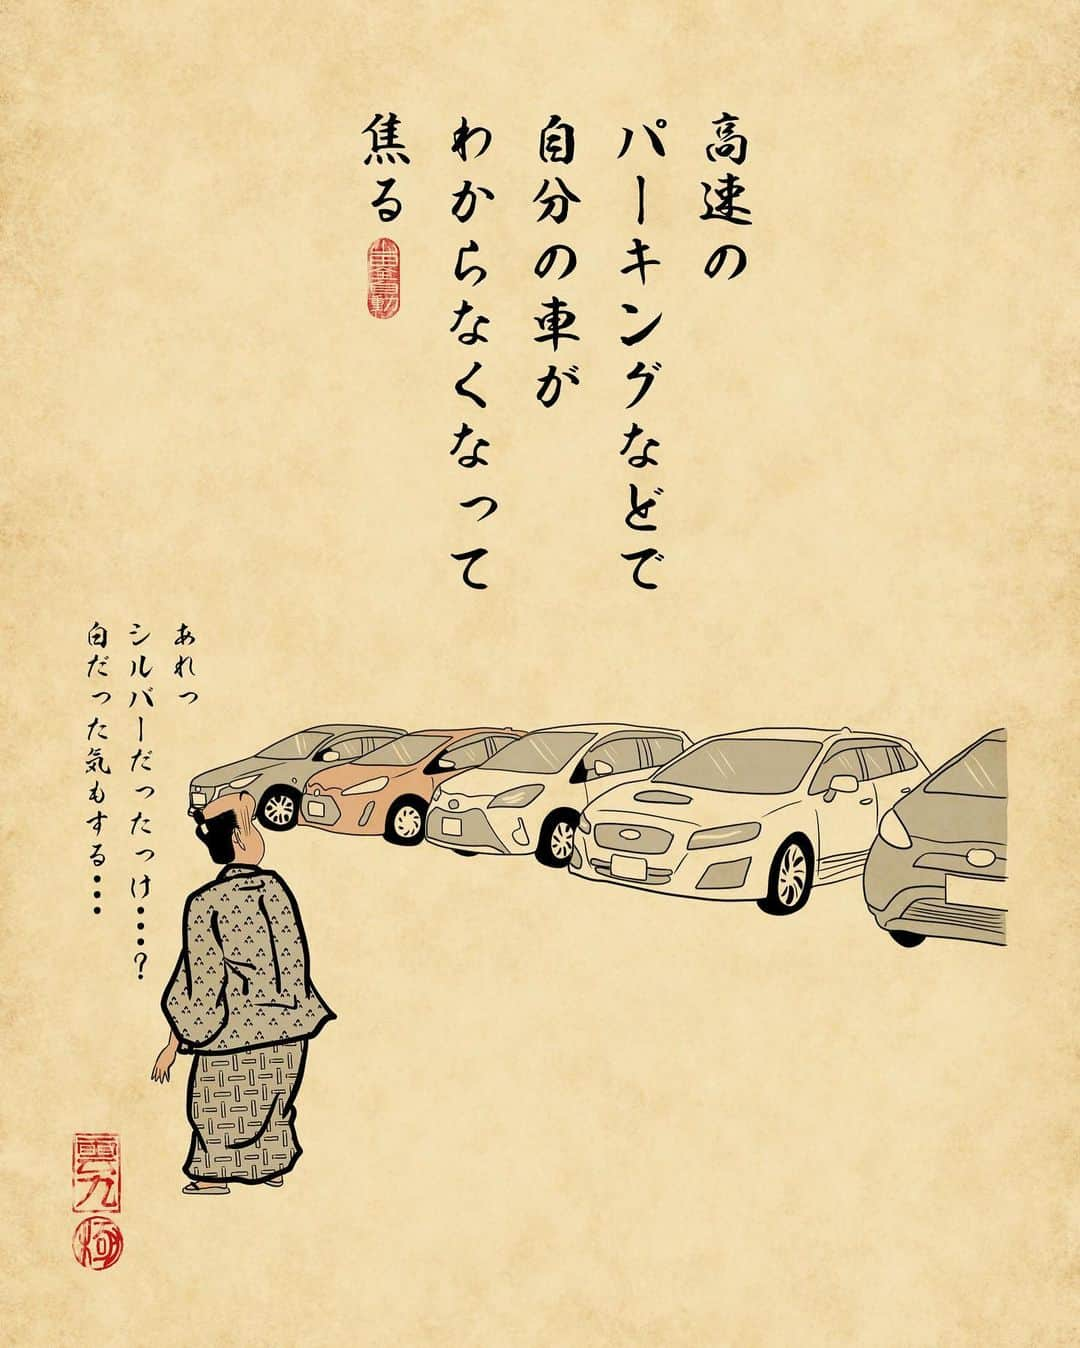 高速の
パーキングなどで
自分の車が
わからなくなって
焦る
あれっ
シルバーだったっけ・・・・？
白だった気もする・・・